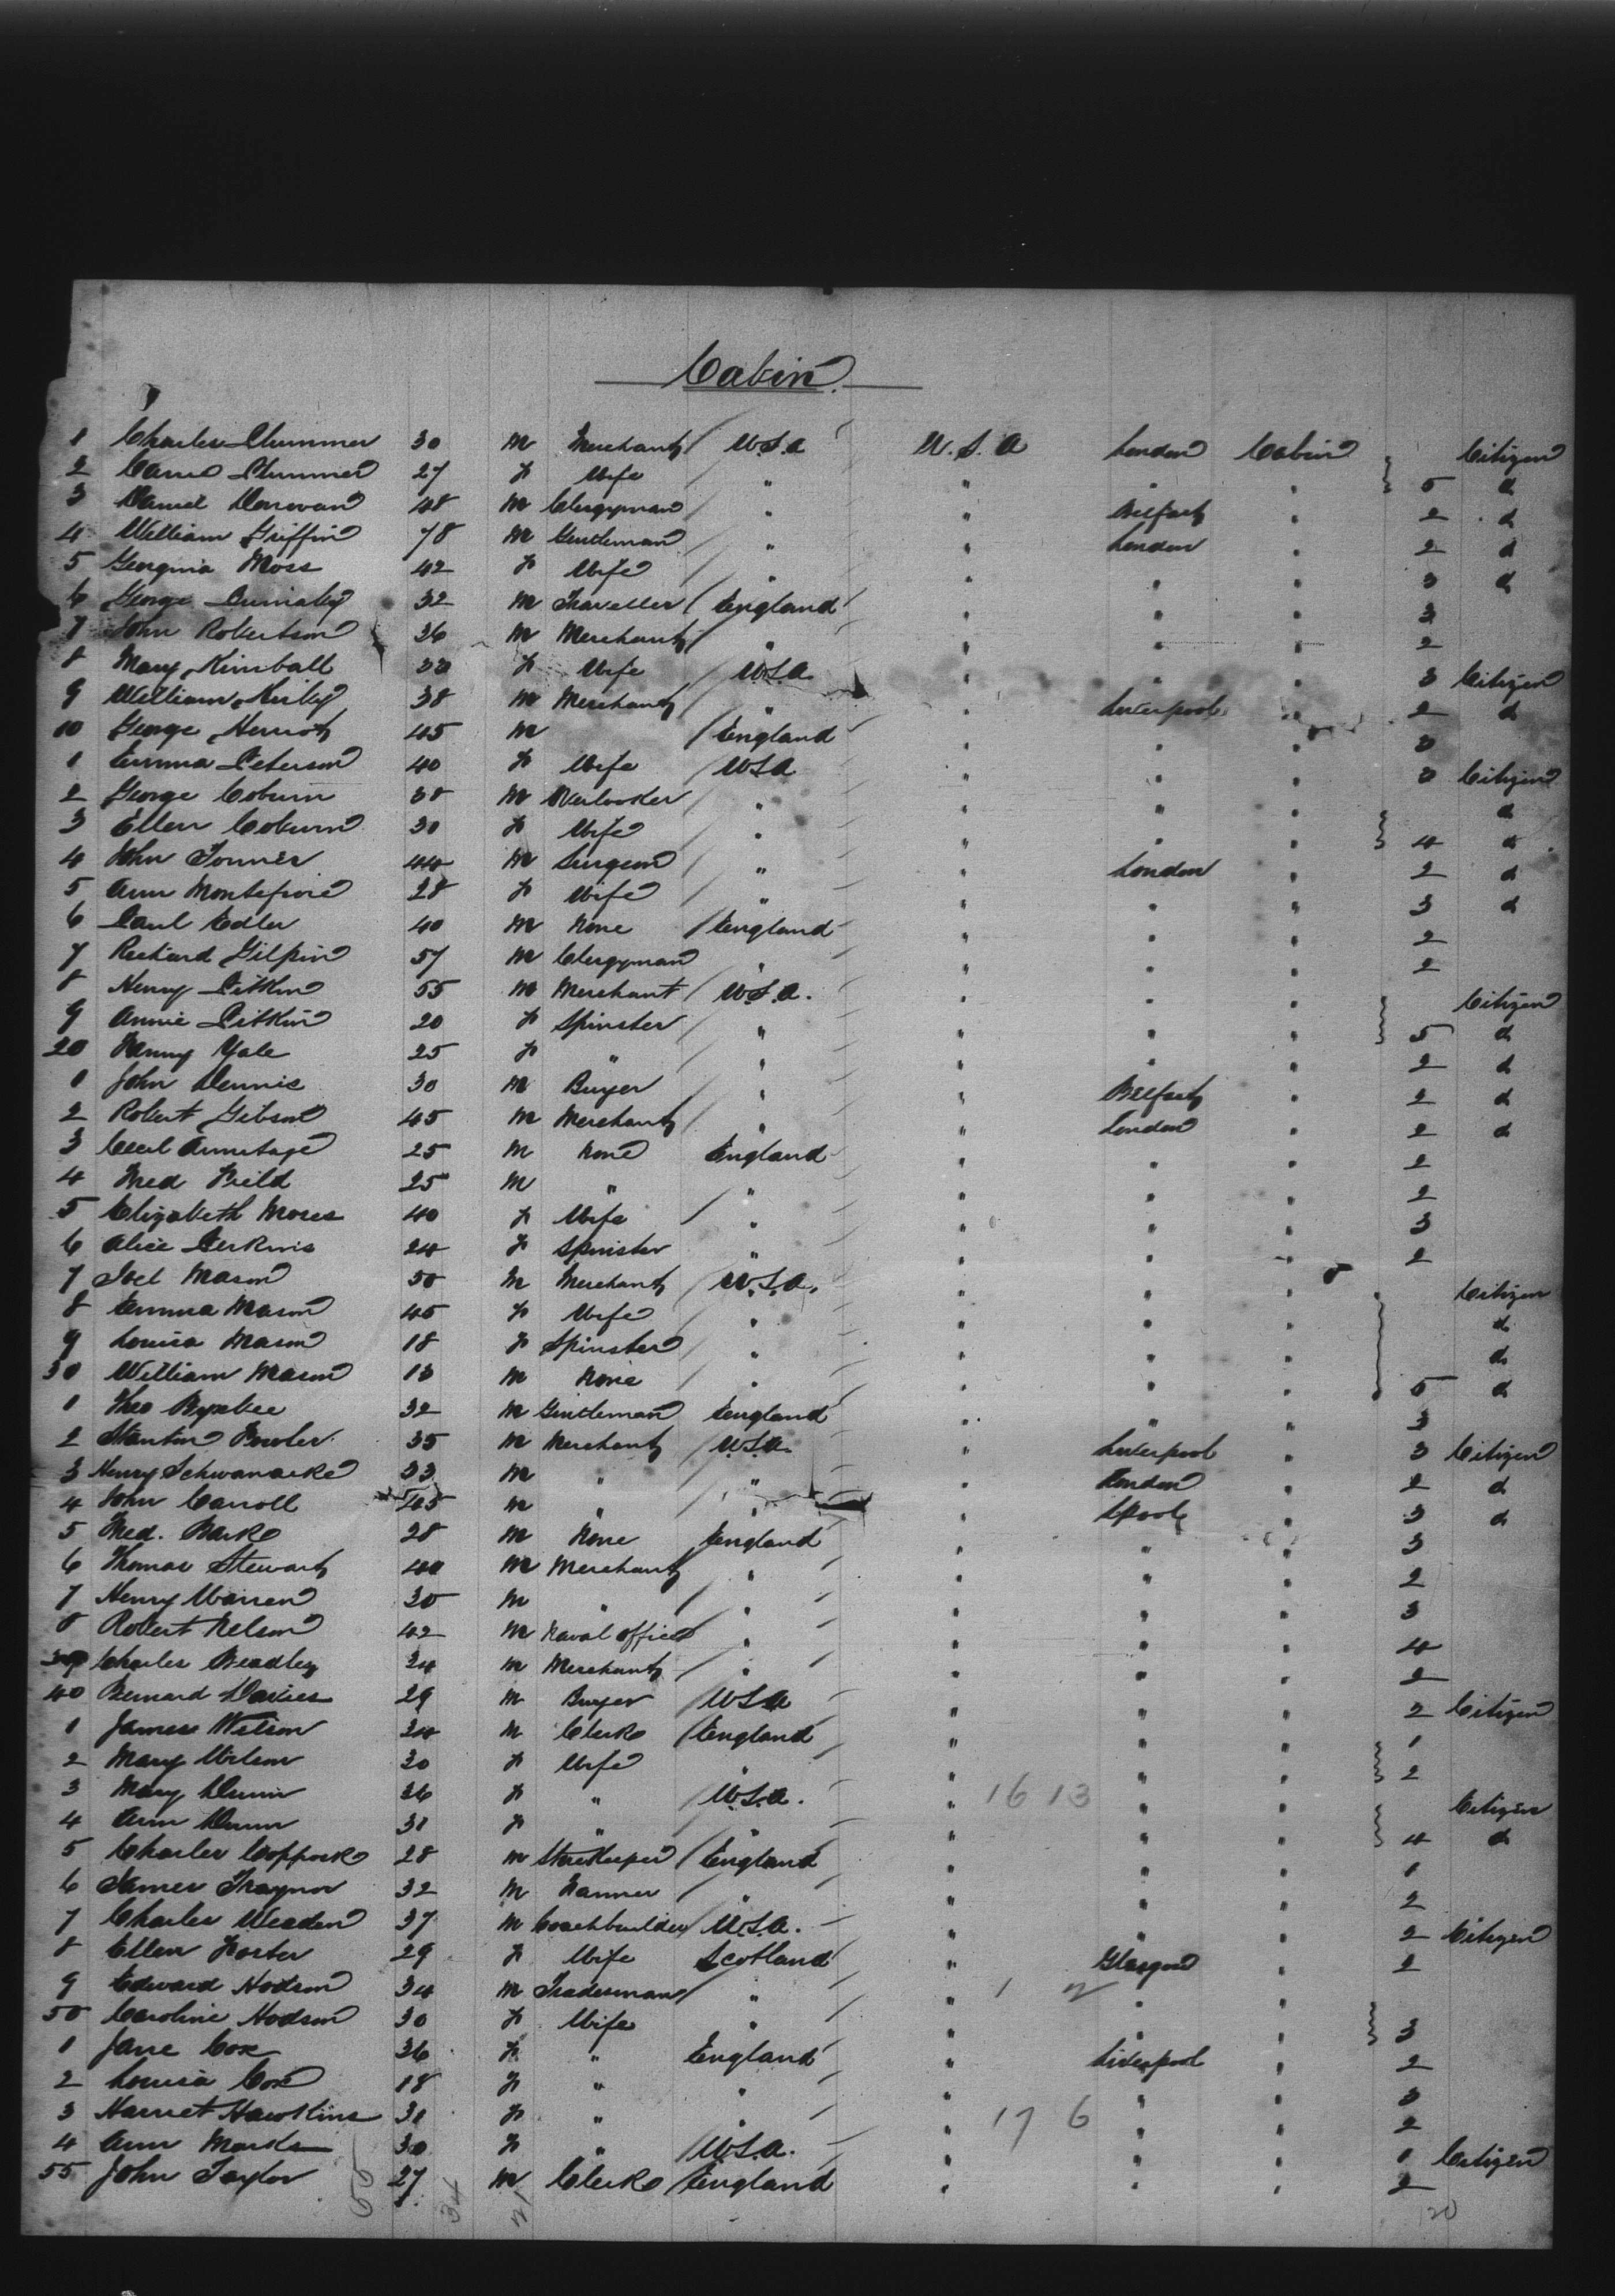 Cabin.
1 Charles Plummer 30 m Merchant U.S.A U.S.A London Cabin Citizen
2 Plummer 27 f Wife " " " " 5 d
3 Daniel Donovan 48 m Clergyman " " Belfast " 2 d
4 William Griffin 78 m Gentleman " " London " 2 d
5 Georgina Moss 42 f Wife " " " " 3 d
6 George 32 m Traveller England " " " 3
7 John Robertson 36 m Merchant " " " " 2
8 Mary Kimball 33 f Wife U.S.A. " " " 3 Citizen
9 William Kirby 38 m Merchant " " Liverpool " 2 d
10 George Herriot 45 m England " " " 3
1 Emma Peterson 40 f Wife U.S.A " " " 3 Citizen
2 George Coburn 38 m Overlooker " " " " d
3 Ellen Coburn 30 f Wife " " " " 4 d
4 John 44 m Surgeon " " London " 2 d
5 Ann Montefiore 28 f Wife " " " " 3 d
6 Paul Edler 40 m None England " " " 2
7 Richard Gilpin 57 m Clergyman " " " " 2
8 Henry Pitkin 55 m Merchant U.S.A. " " " Citizen
9 Annie Pitkin 20 f Spinster " " " " 5 d
20 Fanny Yale 25 f " " " " " 2 d
1 John Dennis 30 m Buyer " " Belfast " 2 d
2 Robert Gibson 45 m Merchant " " London " 2 d
3 Cecil Armitage 25 m None England " " " 2
4 Fred Field 25 m " " " " " 2
5 Elizabeth Moses 40 f Wife " " " " 3
6 Alice Perkins 24 f Spinster " " " " 2
7 Joel Mason 50 m Merchant U.S.A. " " " Citizen
8 Emma Mason 45 f Wife " " " " d
9 Louisa Mason 18 f Spinster " " " " d
30 William Mason 13 m None " " " " 5 d
1 Theo 32 m Gentleman England " " " 3
2 Stanton Fowler 35 m Merchant U.S.A. " Liverpool " 3 Citizen
3 Henry 33 m " " " London " 2 d
4 John Carroll 45 m " " " Lpool " 3 d
5 Fred. 28 m None England " " " 3
6 Thomas Stewart 40 m Merchant " " " " 2
7 Henry Warren 30 m " " " " " 3
8 Robert Nelson 42 m Naval officer " " " " 4
39 Charles Bradley 34 m Merchant " " " " 2
40 Bernard Davies 29 m Buyer U.S.A " " " 2 Citizen
1 James Wilson 34 m Clerk England " " " 1
2 Mary Wilson 30 f Wife " " " " 2
3 Mary Dunn 36 f " U.S.A. " 16 13 " " Citizen
4 Ann Dunn 31 f " " " " " 4 d
5 Charles Coppock 28 m Storekeeper England " " " 1
6 James Traynor 32 m Farmer " " " " 2
7 Charles Weaden 37 m Coachbuilder U.S.A. " " " 2 Citizen
8 Ellen Foster 29 f Wife Scotland " Glasgow " 2
9 Edward Hodson 34 m Tradesman " " 1 2 " "
50 Caroline Hodson 30 f Wife " " " " 3
1 Jane Cox 36 f " England " Liverpool " 2
2 Louisa Cox 18 f " " " " " 3
3 Harriet Hawkins 31 f " " " 17 6 " " 2
4 Ann Marks 30 f " U.S.A. " " " 1 Citizen
55 John Taylor 27 m Clerk England " " " 2
55 34 21 120